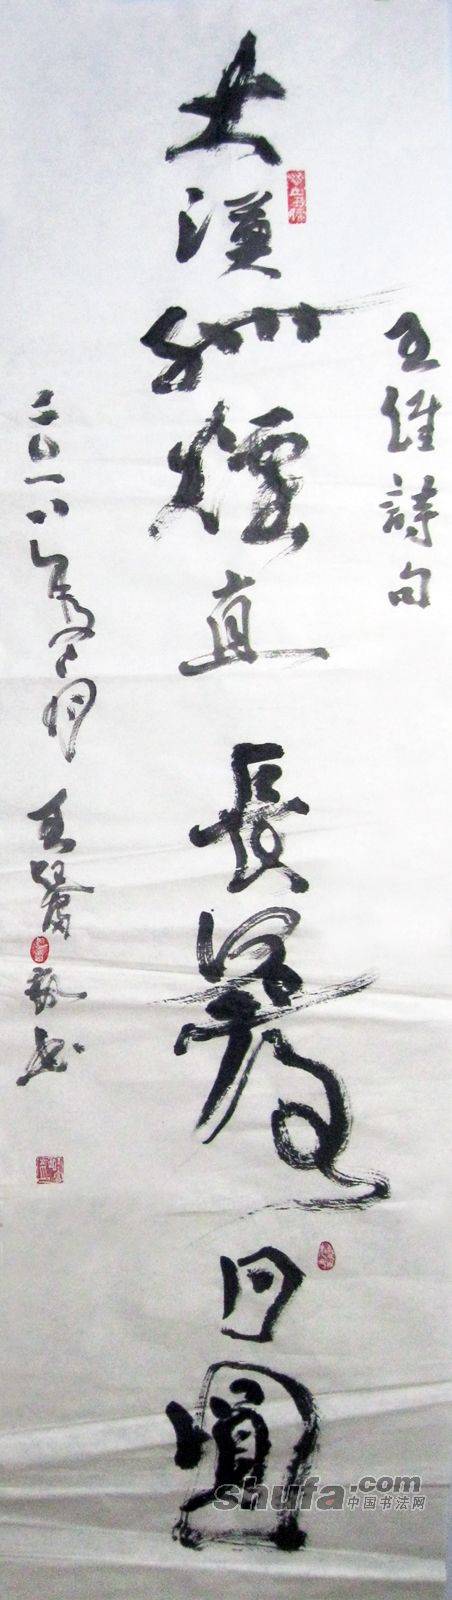 王維詩句
大漠孤煙直長河落日圓
二〇一八年
shufa.com
中国书法网